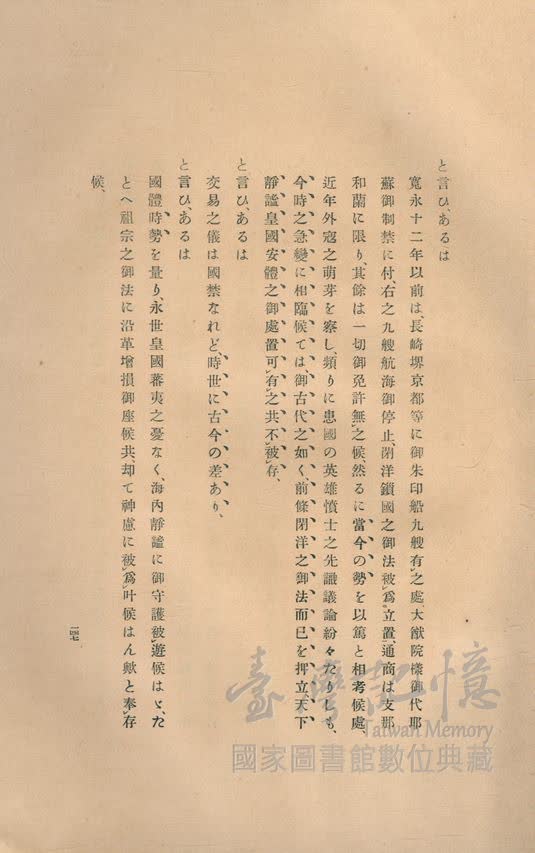 と言ひ、あるは
寬永十二年以前は、長崎堺京都等に御朱印船九艘有㆑之處、大猷院樣御代耶
蘇御制禁に付、右之九艘航海御停止、閉洋鎖國之御法被㆑爲㆓立置㆒、通商は支那
和蘭に限り、其餘は一切御免許無㆑之候然るに當今の勢を以篤と相考候處、
近年外寇之萌芽を察し、頻りに患國の英雄憤士之先識議論紛々たりしも、
今時之急變に相臨候ては、御古代之如く、前條閉洋之御法而已を押立、天下
靜謐皇國安體之御處置可㆑有㆑之共不㆑被㆑存、
と言ひ、あるは
交易之儀は國禁なれど、時世に古今の差あり、
と言ひ、あるは
國體時勢を量り、永世皇國蕃夷之憂なく、海內靜謐に御守護被㆑遊候はゞ、た
とへ祖宗之御法に沿革增損御座候共、却て神慮に被㆑爲㆑叶候はん歟と奉㆑存
候、
一四七
臺灣記憶
Taiwan Memory
國家圖書館數位典藏